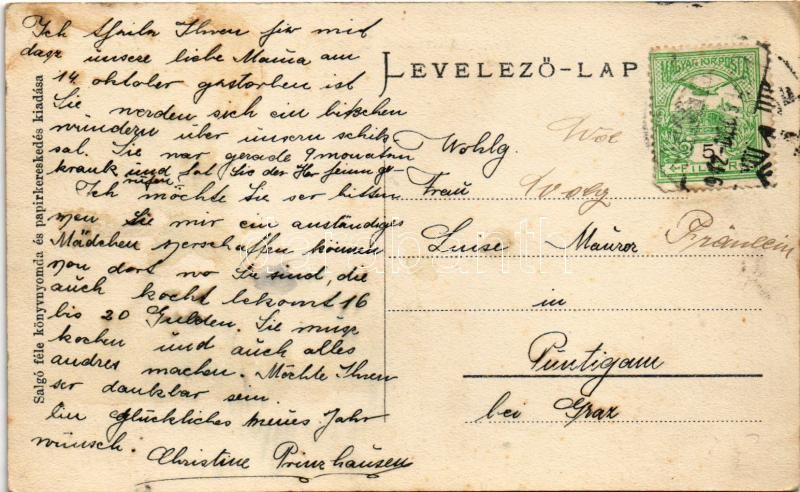 Ich theile Ihnen hir mit
dasz unsere liebe Mama am
14 oktober gestorben ist
Sie werden sich ein bikchen
wundern über unsern schik
sal. Sie war gerade 9 monaten
krank und hat Sie der Her heimge
rufen
Ich möchte Sie ser bitten
wen Sie mir ein anständiges
Mädchen verschaffen können
von dort wo Sie sind, die
auch kocht bekomt 16
bis 20 Gulden. Sie müsz
kochen und auch alles
andres machen. Möchte Ihnen
ser dankbar sein.
Ein glückliches neues Jahr
wünsch. Christine Prinzhausen
LEVELEZŐ-LAP
MAGYAR KIR. POSTA
5
FILLÉR
Wohlg
Frau
Luise Maurer
Fräulein
in
Puntigam
bei Graz
Salgó féle könyvnyomda és papirkereskedés kiadása
darabanth